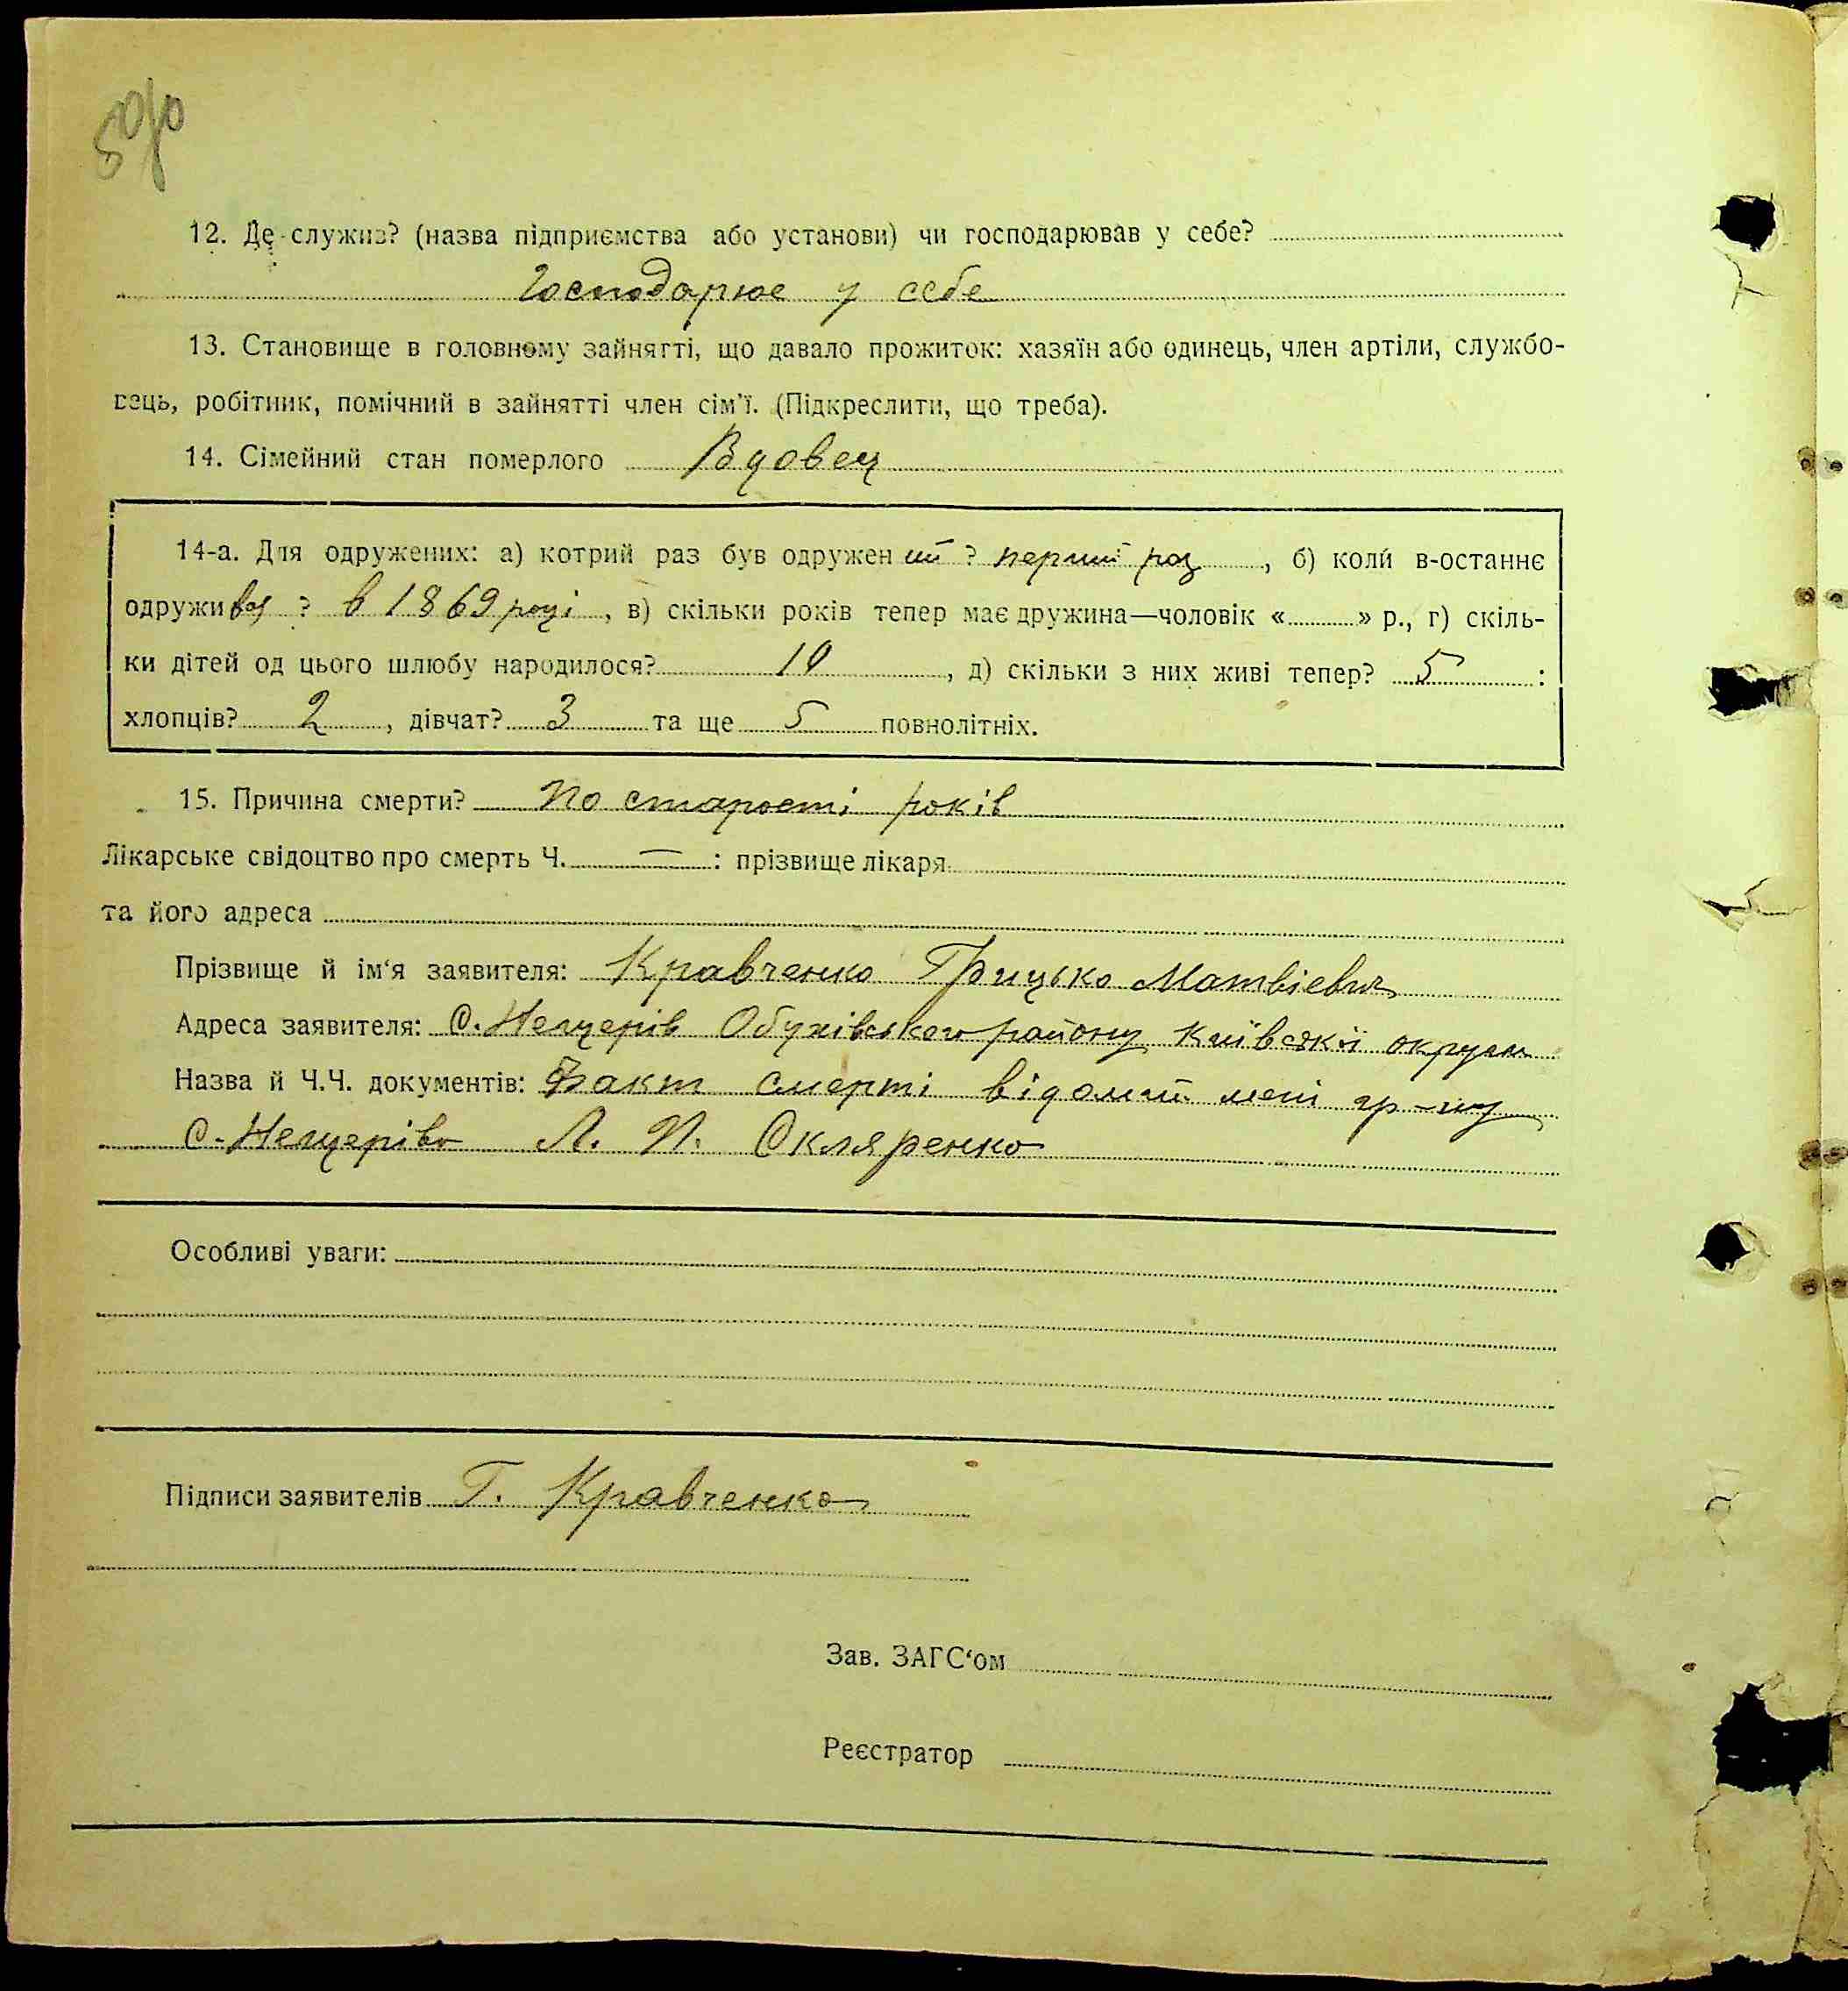 12. Де служив? (назва підприємства або установи) чи господарював у себе?
Господарює у себе
13. Становище в головному зайнятті, що давало прожиток: хазяїн або одинець, член артіли, службо-
вець, робітник, помічний в зайнятті член сім'ї. (Підкреслити, що треба).
14. Сімейний стан померлого Вдовец
14-а. Для одружених: а) котрий раз був одружен ий ? перший раз , б) коли в-останнє
одружи вся ? в 1869 році , в) скільки років тепер має дружина—чоловік « » р., г) скіль-
ки дітей од цього шлюбу народилося? 10 , д) скільки з них живі тепер? 5 :
хлопців? 2 , дівчат? 3 та ще 5 повнолітніх.
15. Причина смерти? По старості років
Лікарське свідоцтво про смерть Ч. — : прізвище лікаря
та його адреса
Прізвище й ім'я заявителя: Кравченко Грицько Матвієвич
Адреса заявителя: С. Нещерів Обухівського району Київскої округи
Назва й Ч.Ч. документів: Факт смерті відомий мені гр-ну
С. Нещерів Л. П. Скляренко
Особливі уваги:
Підписи заявителів Г. Кравченко
Зав. ЗАГС'ом
Реєстратор